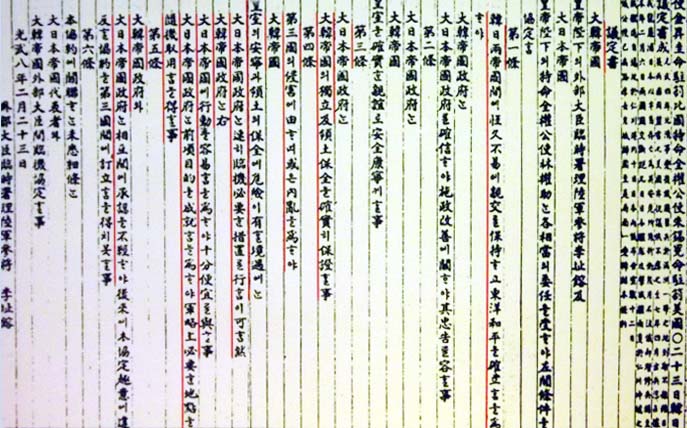 使金昇圭命駐剳比國特命全權公使朱錫冕命駐剳美國○二十三日韓日
議定書成
議定書
大韓帝國
皇帝陛下의外部大臣臨時署理陸軍參將李址鎔及
大日本帝國
皇帝陛下의特命全權公使林權助는各相當의委任을受ᄒᆞ야左開條件을
協定홈
第一條
韓日兩帝國間에恒久不易에親交를保持ᄒᆞ고東洋和平을確立홈을爲ᄒᆞ
야大韓帝國政府는
大日本帝國政府를確信ᄒᆞ야施政改善에關ᄒᆞ야其忠告를容ᄒᆞᆯ事
第二條
大日本帝國政府는
大韓帝國
皇室을確實ᄒᆞᆫ親誼로安全康寧케ᄒᆞᆯ事
第三條
大日本帝國政府는
大韓帝國의獨立及領土保全을確實히保證ᄒᆞᆯ事
第四條
第三國의侵害에由ᄒᆞ며或은內亂을爲ᄒᆞ야
大韓帝國
皇室의安寧과領土의保全에危險이有ᄒᆞᆯ境遇에는
大日本帝國政府는速히臨機必要ᄒᆞᆫ措置를行홈이可홈然
大韓帝國政府는右
大日本帝國에行動을容易홈을爲ᄒᆞ야十分便宜를與ᄒᆞᆯ事
大日本帝國政府는前項目的을成就홈을爲ᄒᆞ야軍略上必要ᄒᆞᆫ地點을
隨機收用홈을得ᄒᆞᆯ事
第五條
大韓帝國政府와
大日本帝國政府는相互間에承認을不經ᄒᆞ야後來에本協定趣意에違
反ᄒᆞᆯ協約을第三國間에訂立홈을得치못ᄒᆞᆯ事
第六條
本協約에關聯ᄒᆞ는未悉細條는
大日本帝國代表者와
大韓帝國外部大臣間에臨機協定ᄒᆞᆯ事
光武八年二月二十三日
外部大臣臨時署理陸軍參將 李址鎔